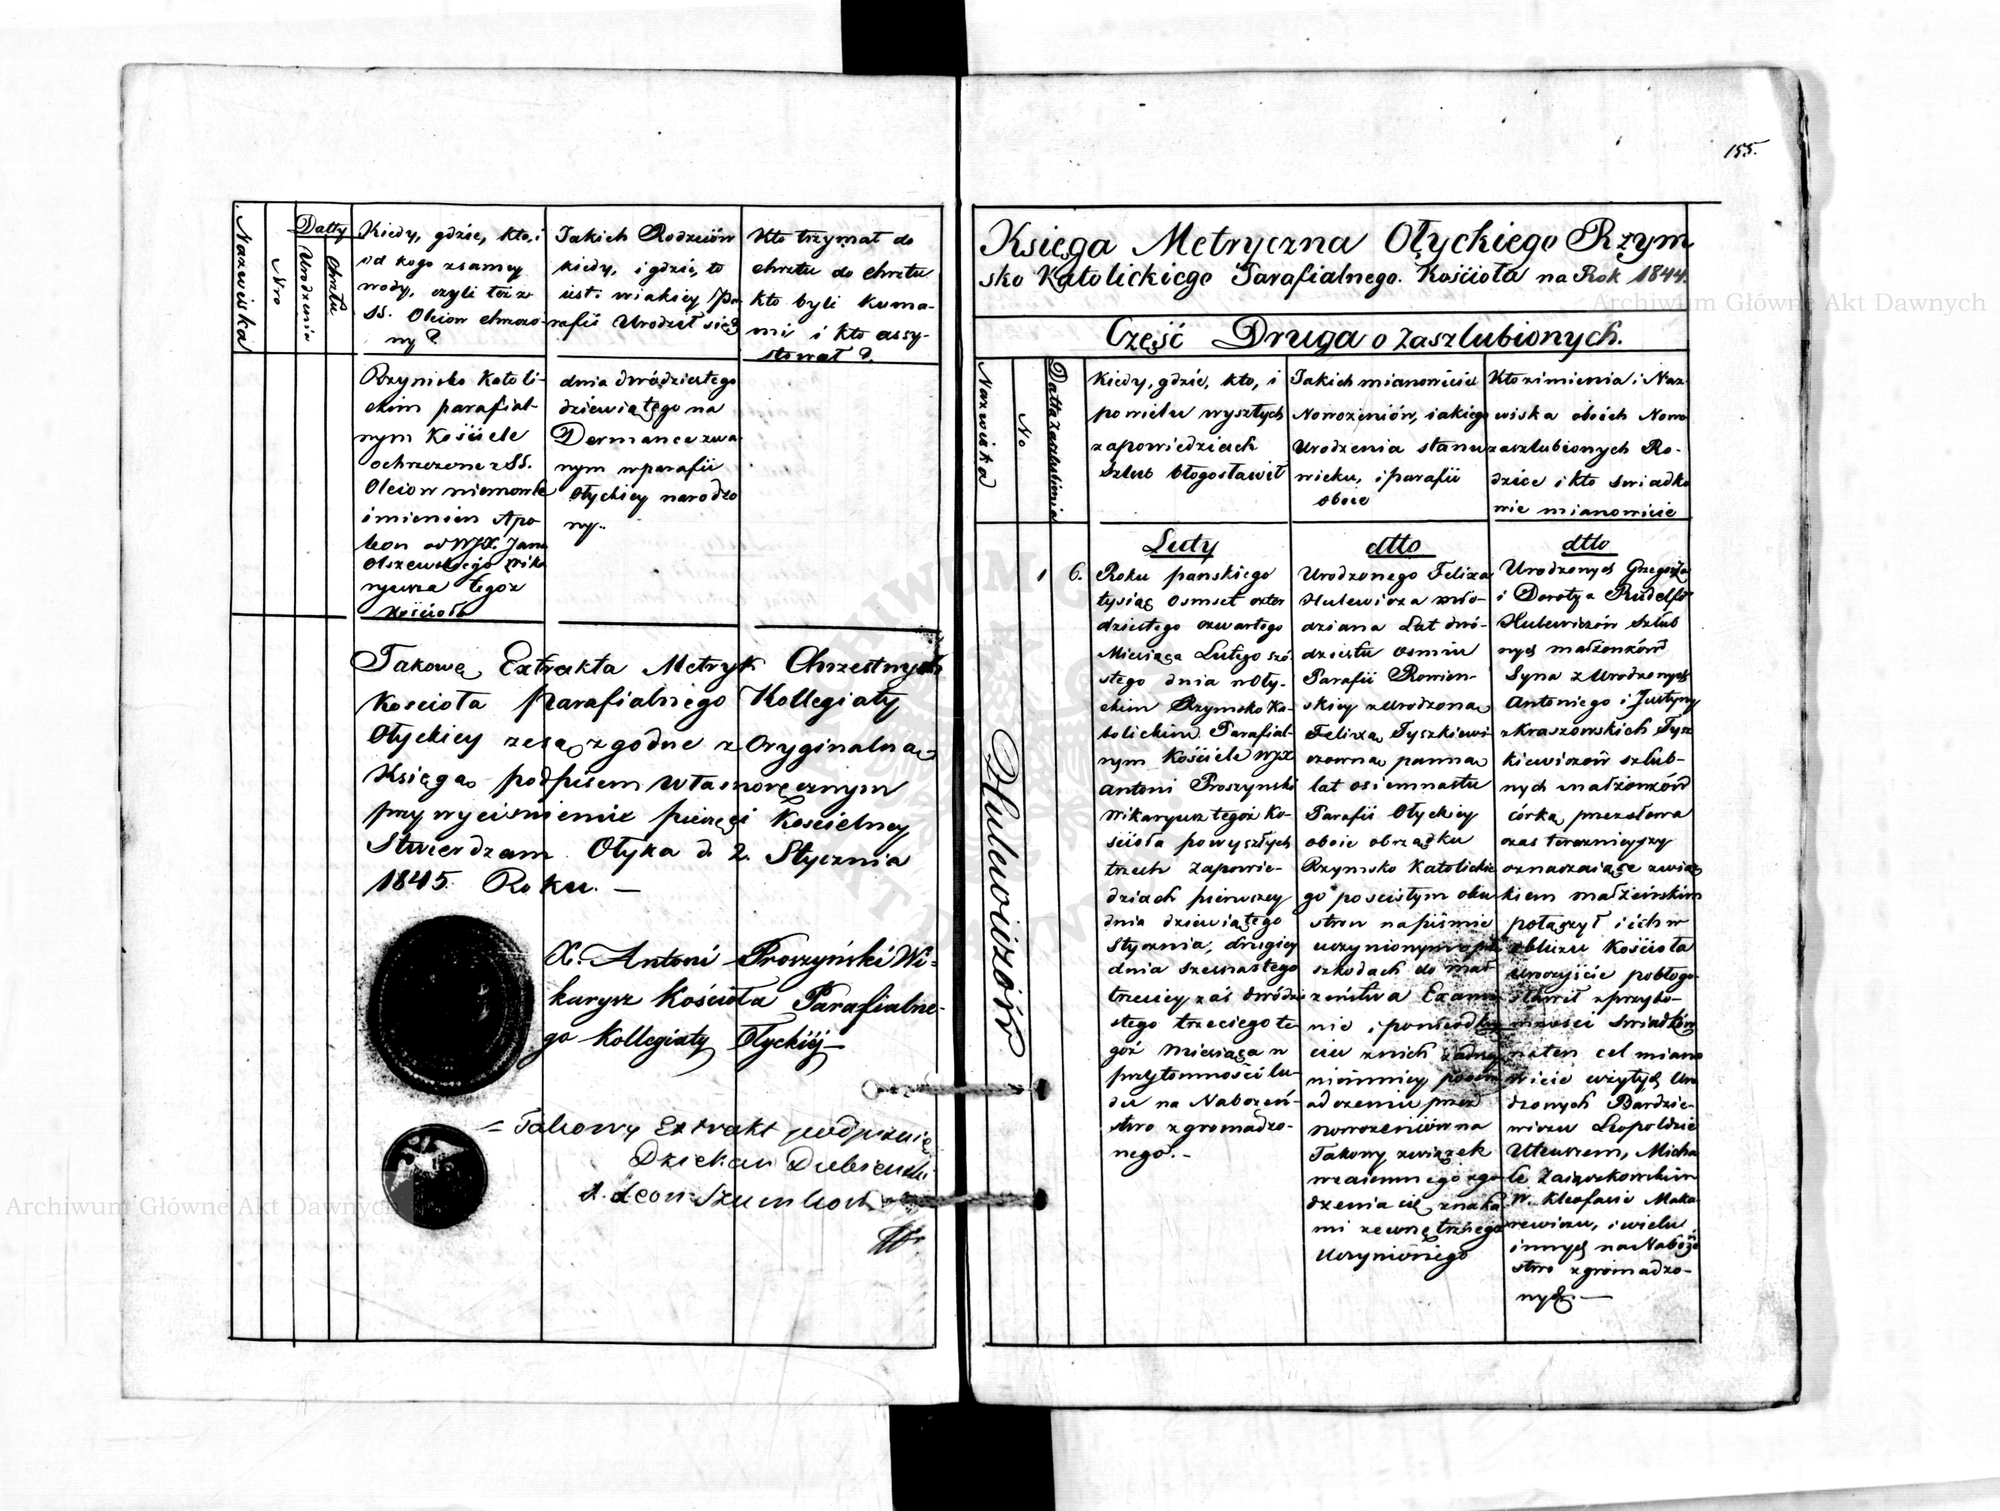 155.
Nazwiska
Nro
Datty
Urodzenia
Chrztu
Kiedy, gdzie, kto, i
od kogo z samey
wody, czyli też z
SS. Oleiow chrzczo-
ny?
Jakich Rodziców
kiedy, i gdzie, to
iest: w iakiey Pa-
rafii Urodził się?
Kto trzymał do
chrztu do chrztu
kto byli kuma-
mi i kto assy-
stował?
Rzymsko Katoli-
ckim parafial-
nym Kościele
ochrzczone z SS.
Oleiow niemowle
imieniem Apo
leon od WJX. Jana
Olszewskiego Wika
ryusza tegoż
Kościoła
dnia dwódziestego
dziewiątego na
Dermance zwa
nym w parafii
Ołyckiey narodzo
ny.
Takowe Extrakta Metryk Chrzestnych
Kościoła Parafialnego Kollegiaty
Ołyckiey że są zgodne z Oryginalną
Księgą podpisem własnoręcznym
przy wyciśnieniu pieczęci Kościelney
Stwierdzam. Ołyka d. 2. Stycznia
1845. Roku. —
X. Antoni Proszyński Wi-
karysz Kościoła Parafialne-
go Kollegiaty Ołyckiéj—
= Takowy Extrakt podpisuię
Dziekan Dubieński
X. Leon
Księga Metryczna Ołyckiego Rzym
sko Katolickiego Parafialnego Kościoła na Rok 1844.
Część Druga o Zaszlubionych.
Nazwiska
No
Datta zaszlubienia
Kiedy, gdzie, kto, i
po wielu wyszłych
zapowiedziach
Szlub błogosławił
Jakich mianowicie
Nowożeniów, iakiego
Urodzenia stanu
wieku, i parafii
oboie
Kto z imienia i Naz
wiska oboich Nowo
zaszlubionych Ro-
dzice i kto świadko
wie mianowicie
Hulewiczów
1
6.
Luty
Roku pańskiego
tysiąc osmset czter
dziestego czwartego
Miesiąca Lutego szó-
stego dnia w Oły-
ckim Rzymsko Ka-
tolickim Parafial-
nym Kościele WJX
Antoni Proszyński
Wikaryusz tegoż Ko-
ścioła po wyszłych
trzech Zapowie-
dziach pierwszey
dnia dziewiątego
Stycznia, drugiey
dnia szesnastego
trzeciey zaś dwódzie
stego trzeciego te
goż Miesiąca w
przytomności lu-
du na Nabożeń-
stwo zgromadzo-
nego.-
dtto
Urodzonego Felixa
Hulewicza mło-
dziana Lat dwó-
dziestu osmiu
Parafii Rowien-
skiey z urodzoną
Felixą Tyszkiewi
czowną panną
lat osiemnastu
Parafii Ołyckiey
oboie obrządku
Rzymsko Katolickie
go po ścisłym obu
stron na piśmie
uczynionym o prze
szkodach do mał
żeństwa Exami
nie i po
ciu z nich żadney
nieinney
adczeniu przez
nowożeniów na
Takowy związek
wzaiemnego zgo-
dzenia się znaka
mi zewnętrznego
uczynionego
dtto
Urodzonych Grzegorza
i Dorotę z Rudolfó
Hulewiczów Szlub
nych małżonków
Syna z Urodzonych
Antoniego i Justyny
z Kraszowskich Tysz
kiewiczów szlub-
nych małżonków
córką, przez słowa
czas teraznieyszy
oznaczaiące związ
kiem małżeńskim
połączył i ich w
obliczu Kościoła
uroczyście pobłogo
sławił z przyto-
mności świadków
na ten cel miano
wicie użytych Uro
dzonych Bardzie-
wiczu Leopoldzie
Micha
le
W. Kleofasie Maka
rewiczu, i wielu
innych na Nabożeń
stwo zgromadzo-
nych. —
Archiwum Główne Akt Dawnych
Archiwum Główne Akt Dawnych